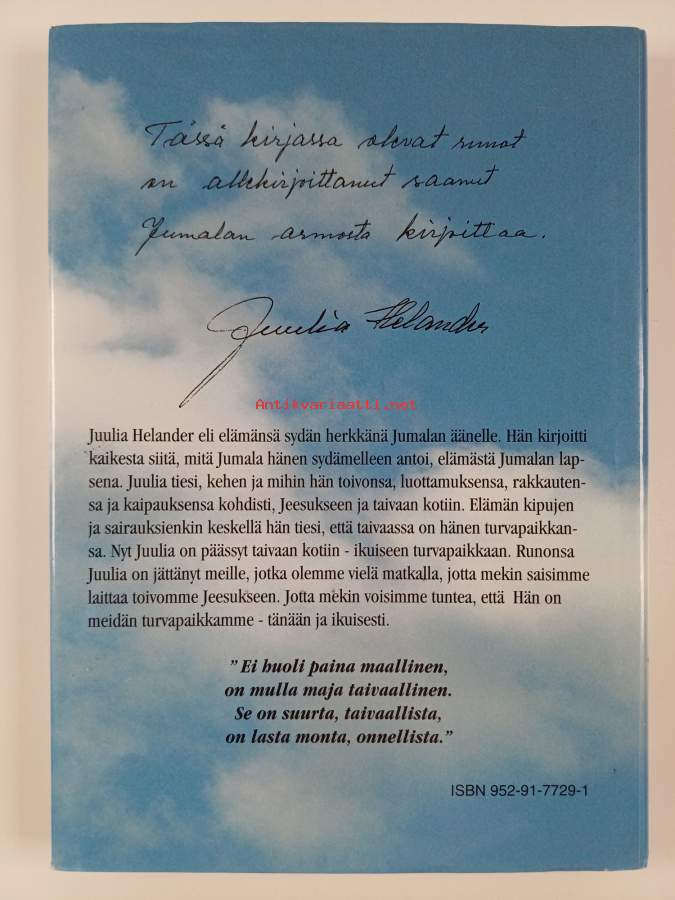 Tässä kirjassa olevat runot
on allekirjoittanut saanut
Jumalan armosta kirjoittaa.
Juulia Helander
Antikvariaatti.net
Juulia Helander eli elämänsä sydän herkkänä Jumalan äänelle. Hän kirjoitti
kaikesta siitä, mitä Jumala hänen sydämelleen antoi, elämästä Jumalan lap-
sena. Juulia tiesi, kehen ja mihin hän toivonsa, luottamuksensa, rakkauten-
sa ja kaipauksensa kohdisti, Jeesukseen ja taivaan kotiin. Elämän kipujen
ja sairauksienkin keskellä hän tiesi, että taivaassa on hänen turvapaikkan-
sa. Nyt Juulia on päässyt taivaan kotiin - ikuiseen turvapaikkaan. Runonsa
Juulia on jättänyt meille, jotka olemme vielä matkalla, jotta mekin saisimme
laittaa toivomme Jeesukseen. Jotta mekin voisimme tuntea, että Hän on
meidän turvapaikkamme - tänään ja ikuisesti.
"Ei huoli paina maallinen,
on mulla maja taivaallinen.
Se on suurta, taivaallista,
on lasta monta, onnellista."
ISBN 952-91-7729-1